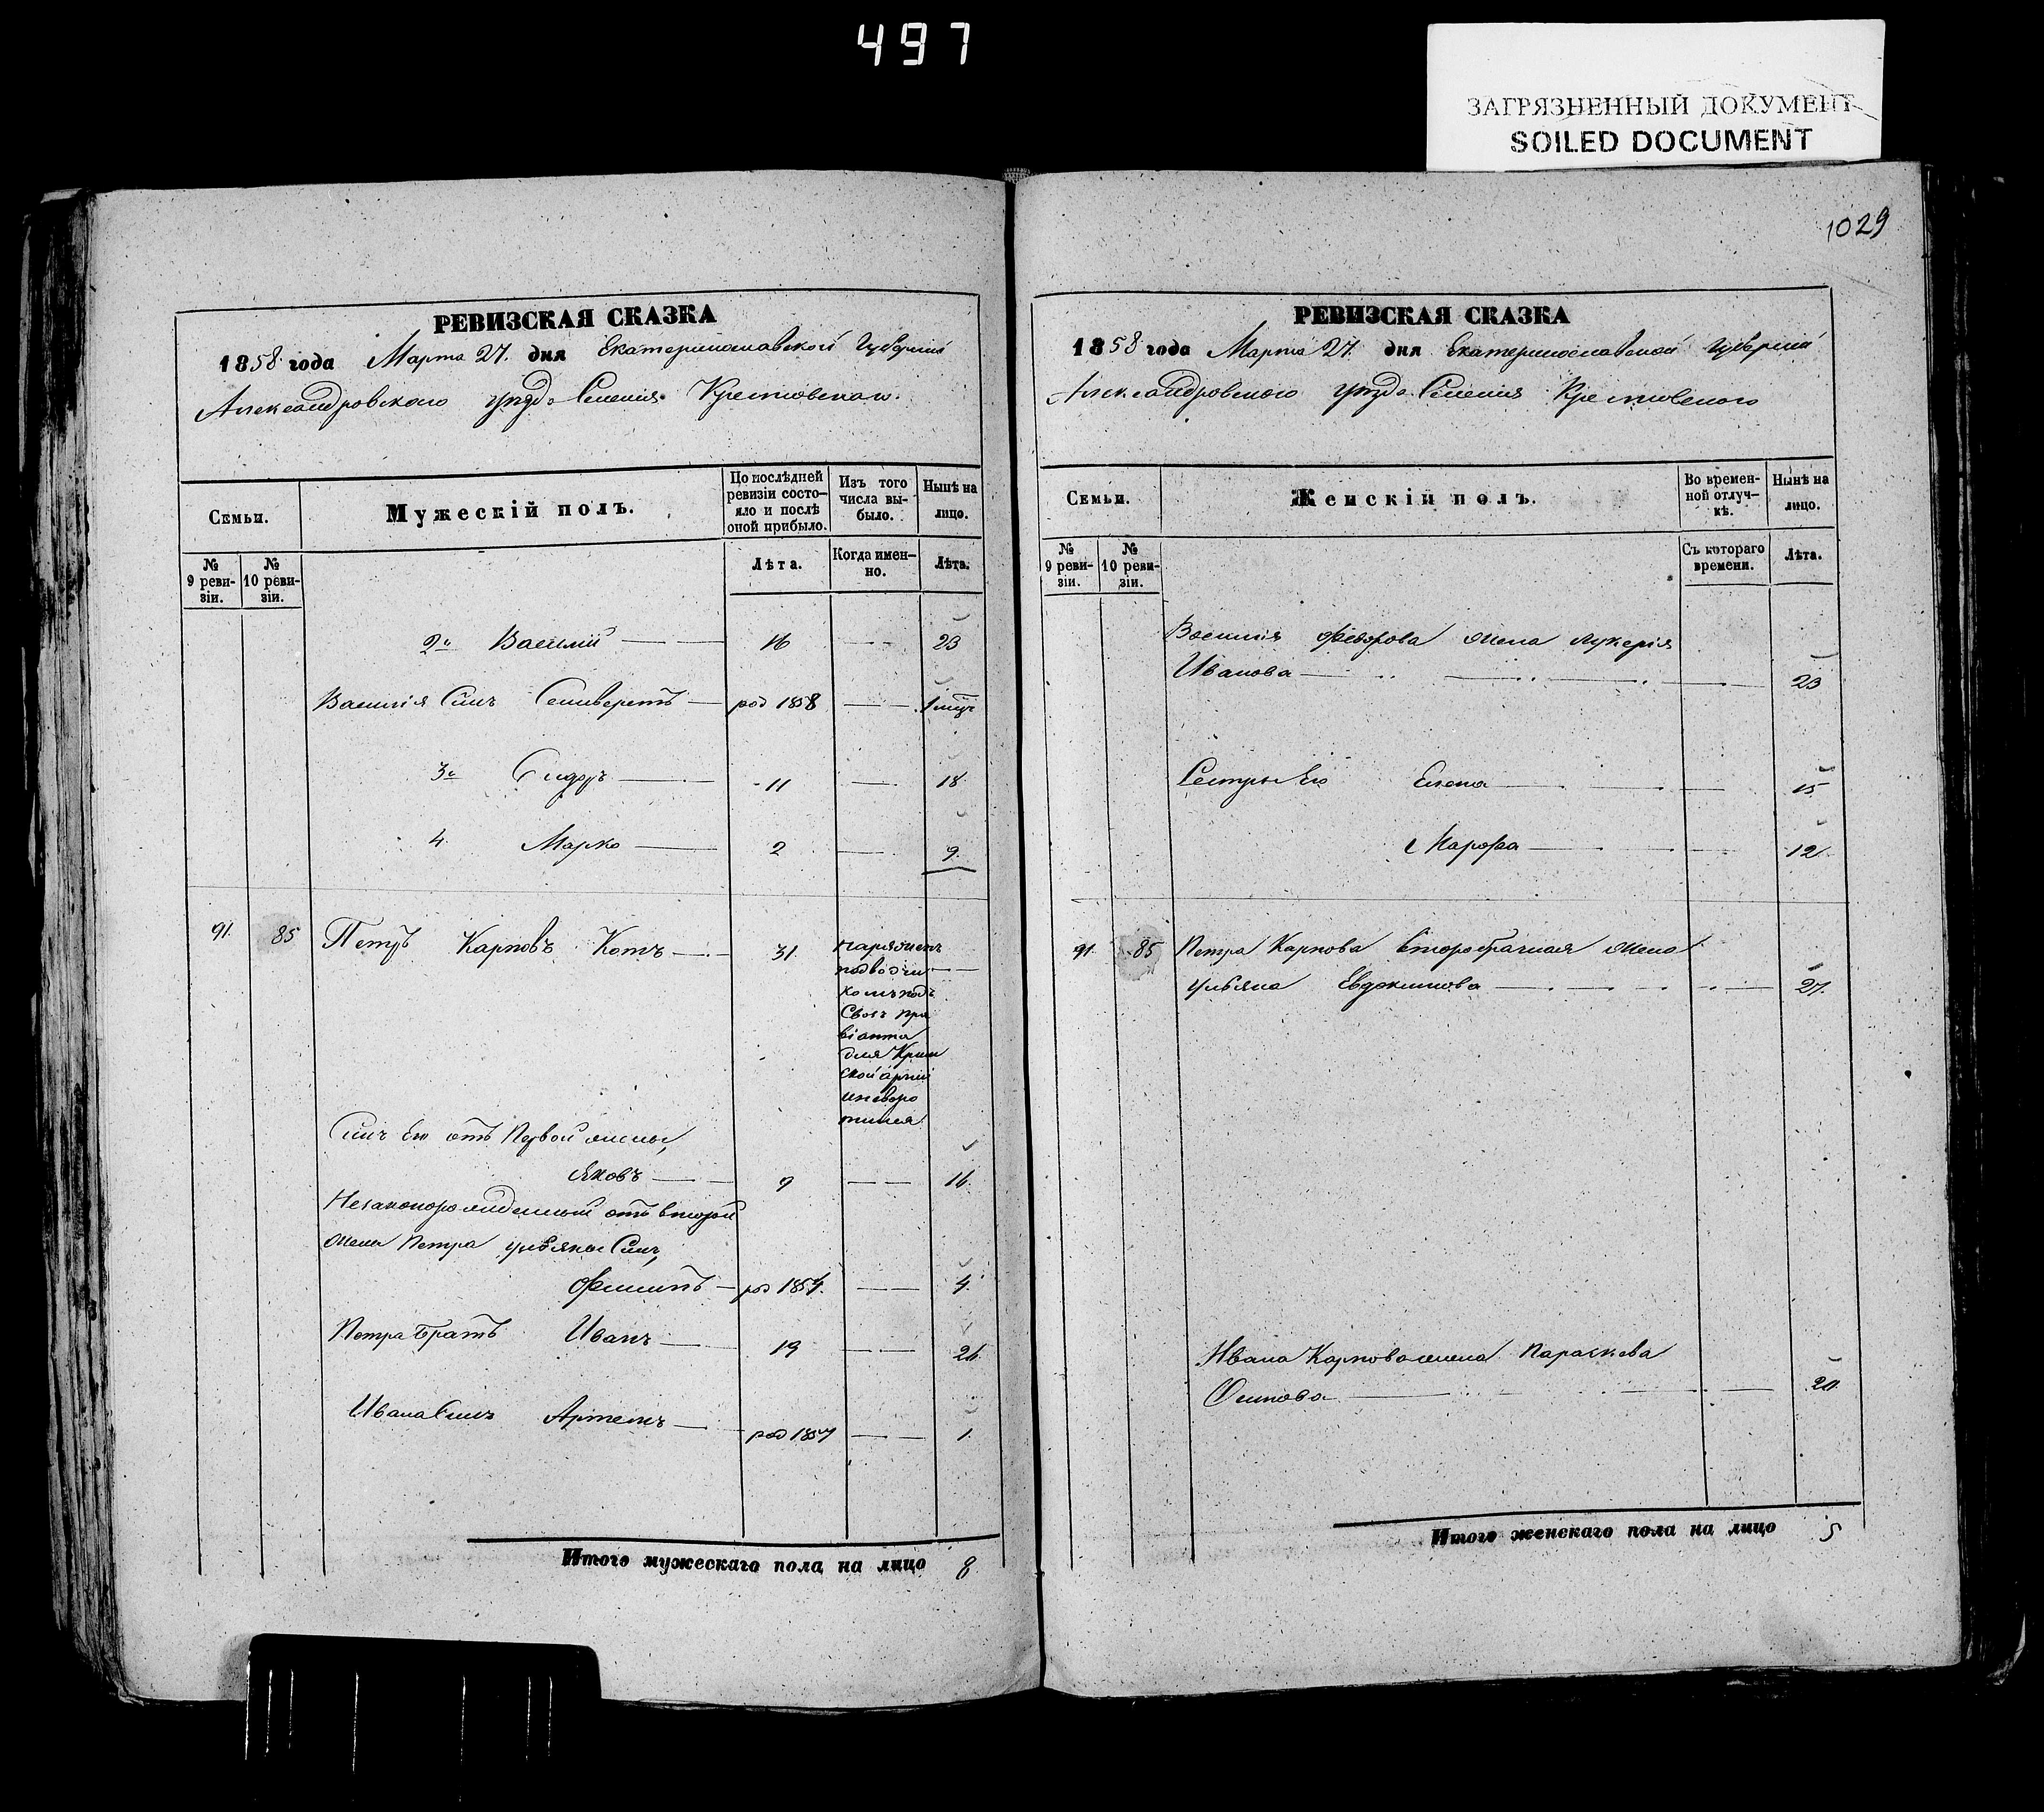 497
ЗАГРЯЗНЕННЫЙ ДОКУМЕНТ
SOILED DOCUMENT
РЕВИЗСКАЯ СКАЗКА
1858 года Марта 27. дня Екатеринославской Губерніи
Александровского уѣзда Селенія Крестовского.
Семьи.
Мужескій полъ.
По послѣдней ревизіи состо-
яло и послѣ
оной прибыло.
Изъ того
числа вы-
было.
Нынѣ на
лицо.
№
9 реви-
зіи.
№
10 реви-
зіи.
Лѣта.
Когда имен-
но.
Лѣта.
2й Василій 16 23
Василія Сынъ Селиверстъ род 1858 1 мѣц
3й Сидоръ 11 18
4 Марко 2 9.
91. 85 Петръ Карповъ Котъ 31.
наряженъ
подводчи
комъ подъ
Своз про
віанта
для Крым
ской арміи
и неворо
тился
Сынъ Его отъ Первой жены,
Яковъ 9 16
Незаконорожденный отъ второй
жены Петра Ульяны Сынъ,
Филипъ род 1854. 4.
Петра братъ Иванъ 19 26
Ивана Сынъ Артемъ род 1857 1.
Итого мужескаго пола на лицо 8
1029
РЕВИЗСКАЯ СКАЗКА
1858 года Марта 27. дня Екатеринославской Губерніи
Александровского уѣзда Селенія Крестовского
Семьи.
Женскій полъ.
Во времен-
ной отлуч-
кѣ.
Нынѣ на
лицо.
№
9 реви-
зіи.
№
10 реви-
зіи.
Съ котораго
времени.
Лѣта.
Василія Федорова жена Лукерія
Иванова 23
Сестры Его Елена 15
Марфа 12
91. 85 Петра Карпова второбрачная жена
Ульяна Евдокимова 27.
Ивана Карпова жена Параскева
Осипова 20
Итого женскаго пола на лицо 5